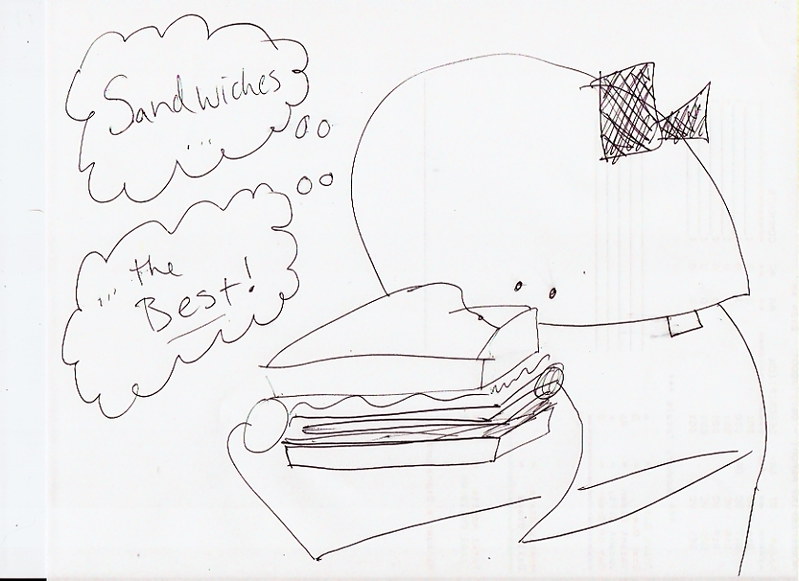 Sandwiches
...
... the
Best!